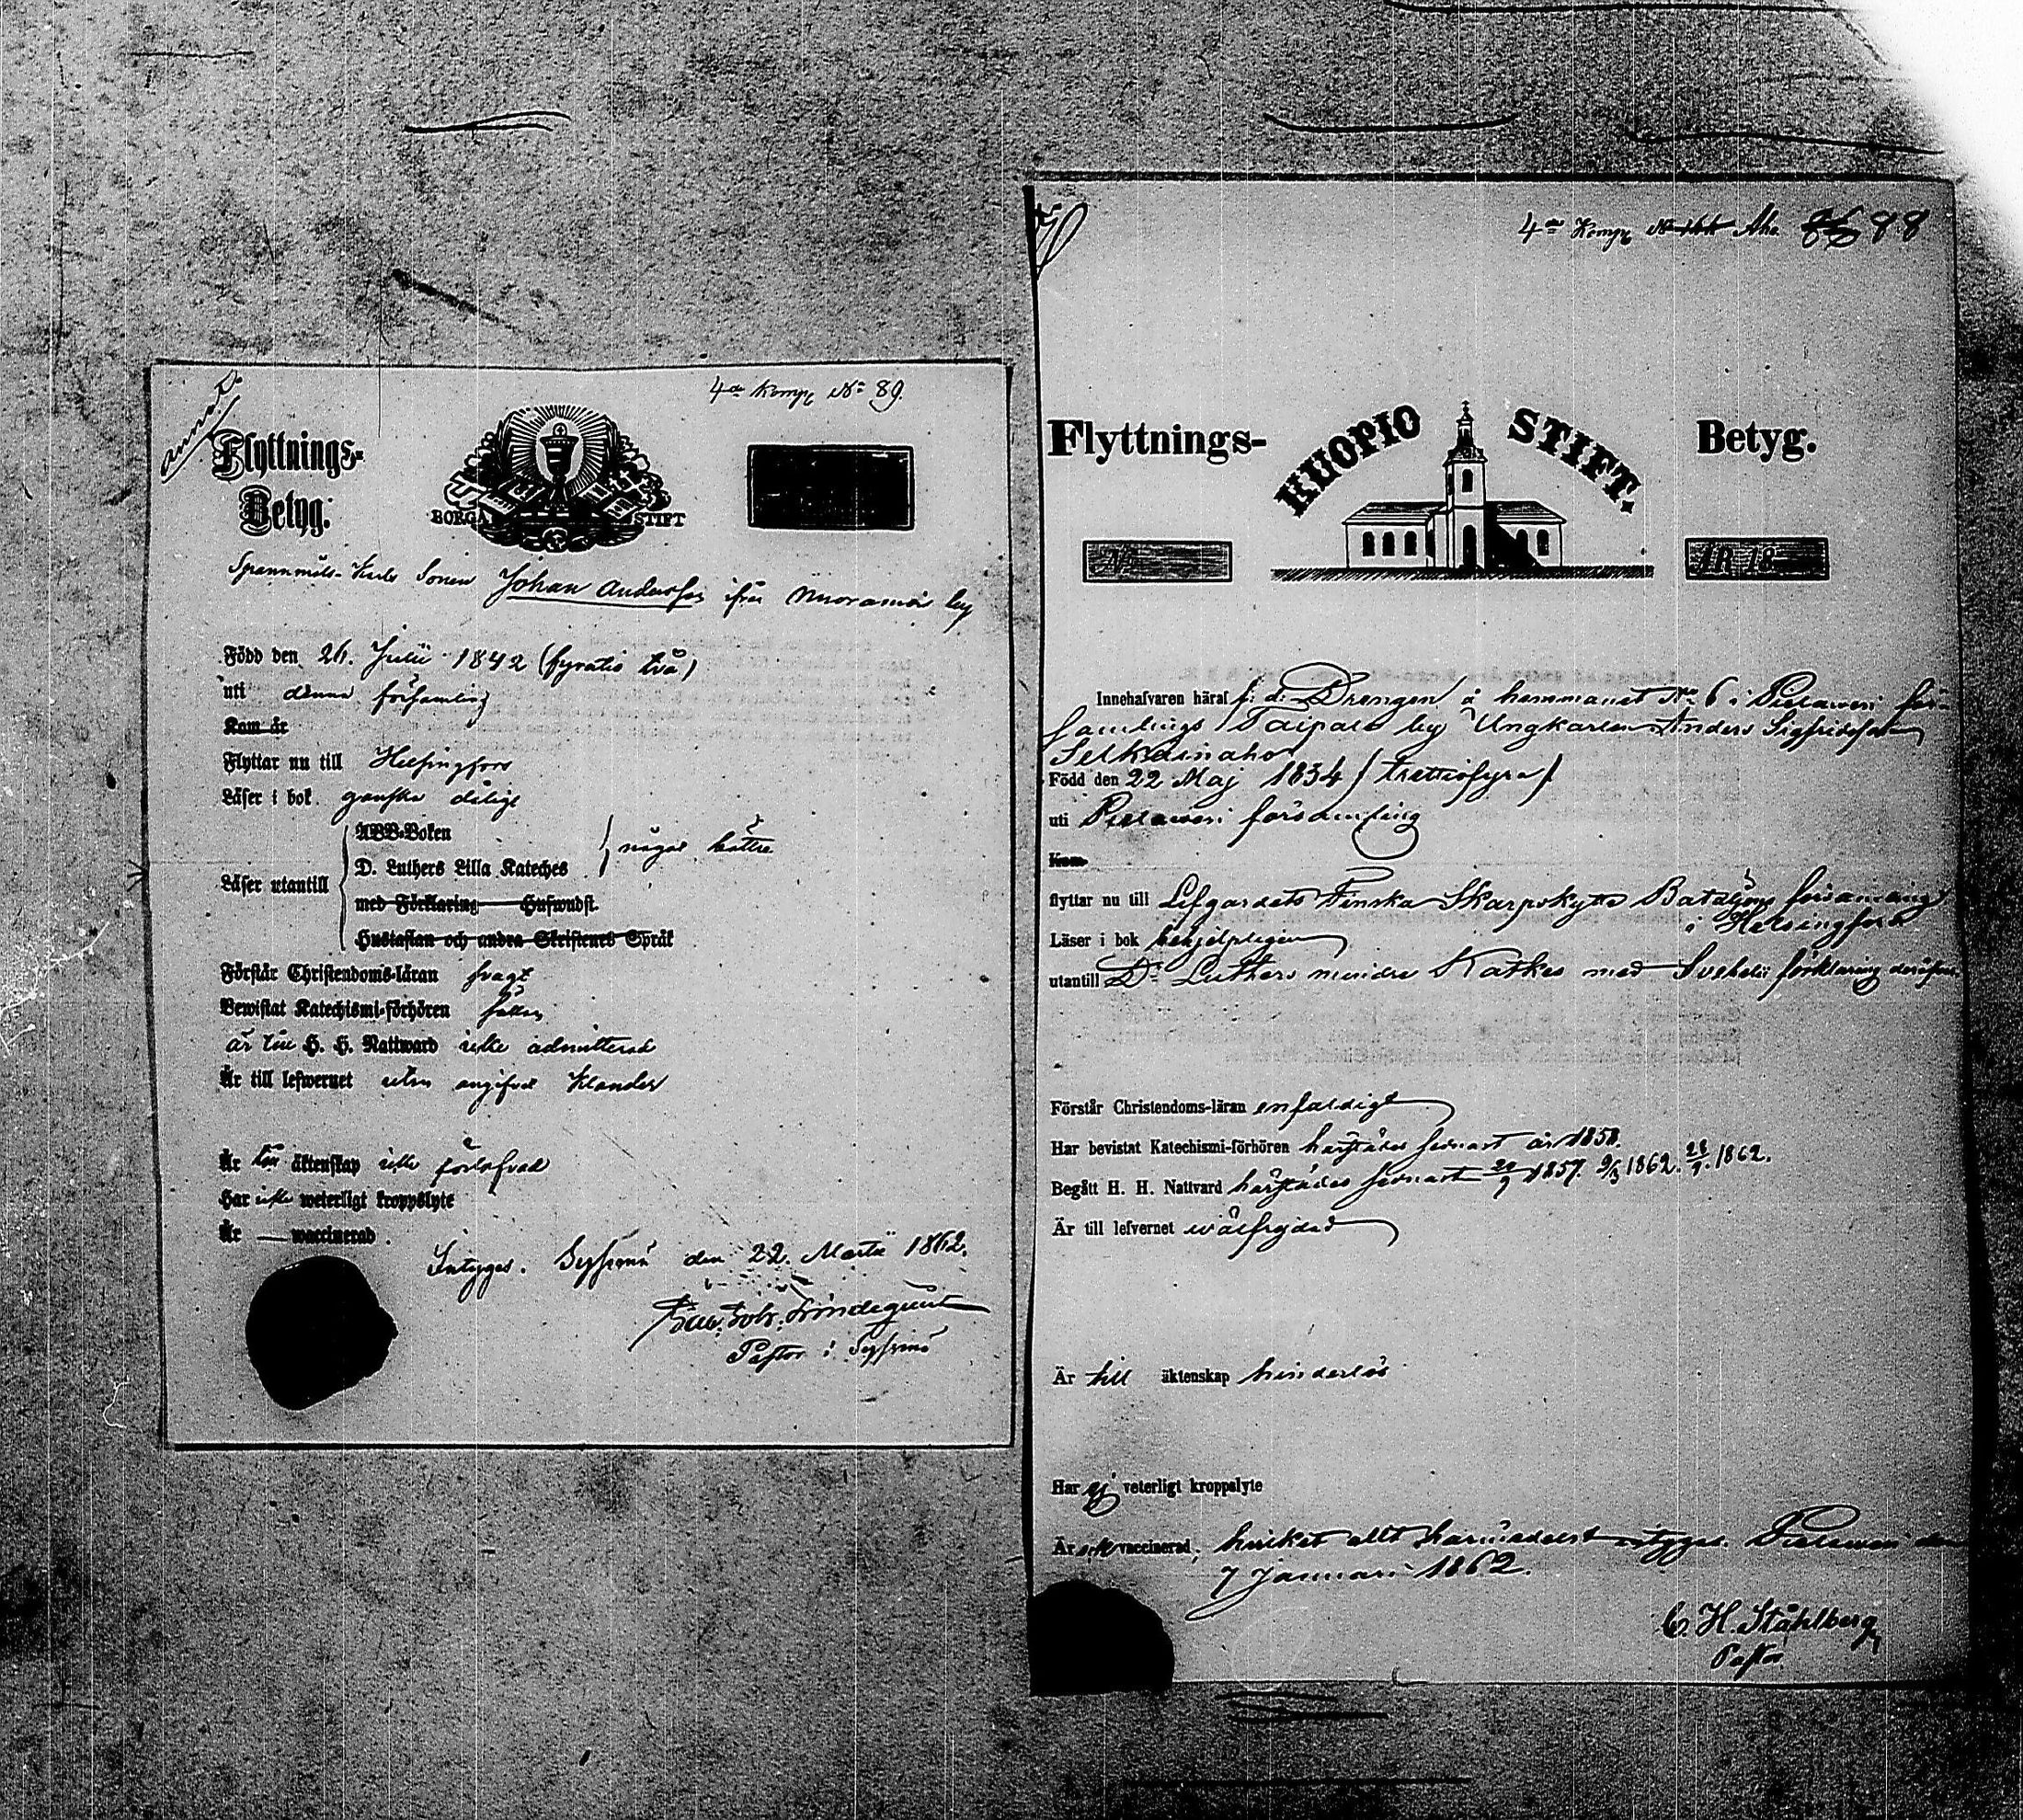 4de Komp. No 89.
Flyttnings-
Betyg.
BORGÅ STIFT
Spannmåls-Karls Sonen Johan Andersson ifrån Nuoramois by
Född den 26. Julii 1842 (fyratio två)
uti denna församling
Kom år
Flyttar nu till Helsingfors
Läser i bok ganska dåligt
ABB-Boken
D. Luthers Lilla Kateches
något bättre
Läser utantill
med Förklaring Husw
Hustaflan och andra Skriftenes Språk
Förstår Christendoms-läran svagt
Bewistat Katechismi-förhören sällan
är till H. H. Nattward icke admitterad
Är till lefwernet utan angifvet klander
Är till äktenskap icke förlofvad
Har icke weterligt kroppslyte
Är — waccinerad.
Intygas. Sysmä den 22. Martii 1862.
Pastor i Sysmä
4de Komp. No 88
Flyttnings-
KUOPIO STIFT.
Betyg.
No
ÅR 18
Innehafvaren häraf f: d: Drengen å hemmanet No 6 i Pielavesi för-
samlings Taipale by Ungkarlen Anders Sigfridsson
Selkäinaho
Född den 22 Maj 1834 / trettiofyra /
uti Pielavesi församling
Kom
flyttar nu till Lifgardets Finska Skarpskytte Bataljons församling
i Helsingfors
Läser i bok behjelpligen
utantill Dr Luthers mindre Katkes med Svebelii förklaring deröfver
Förstår Christendoms-läran enfaldigt
Har bevistat Katechismi-förhören härstädes senast år 1858.
Begått H. H. Nattvard härstädes senast 1857. 9/3 1862. 1862.
Är till lefvernet wälfrejdad
Är till äktenskap hinderlös
Har ej veterligt kroppslyte
Är vaccinerad; hvilket allt härmedelst intygas. Pielavesi den
7 Januari 1862.
C. H. Ståhlberg
Pastor